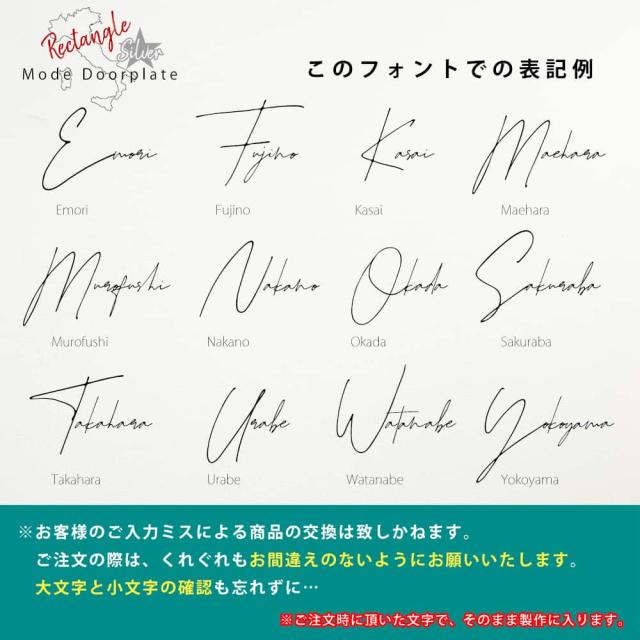 Rectangle
Silver
Mode Doorplate
このフォントでの表記例
Emori Fujino Kasai Maehara
Emori Fujino Kasai Maehara
Murofushi Nakano Okada Sakuraba
Murofushi Nakano Okada Sakuraba
Takahara Urabe Watanabe Yokoyama
Takahara Urabe Watanabe Yokoyama
※お客様のご入力ミスによる商品の交換は致しかねます。
ご注文の際は、くれぐれもお間違えのないようにお願いいたします。
大文字と小文字の確認も忘れずに…
※ご注文時に頂いた文字で、そのまま製作に入ります。